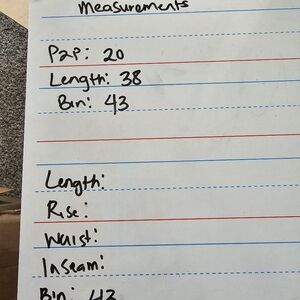 Measurements
P2P: 20
Length: 38
Bin: 43
Length:
Rise:
Waist:
Inseam:
Bin: 43